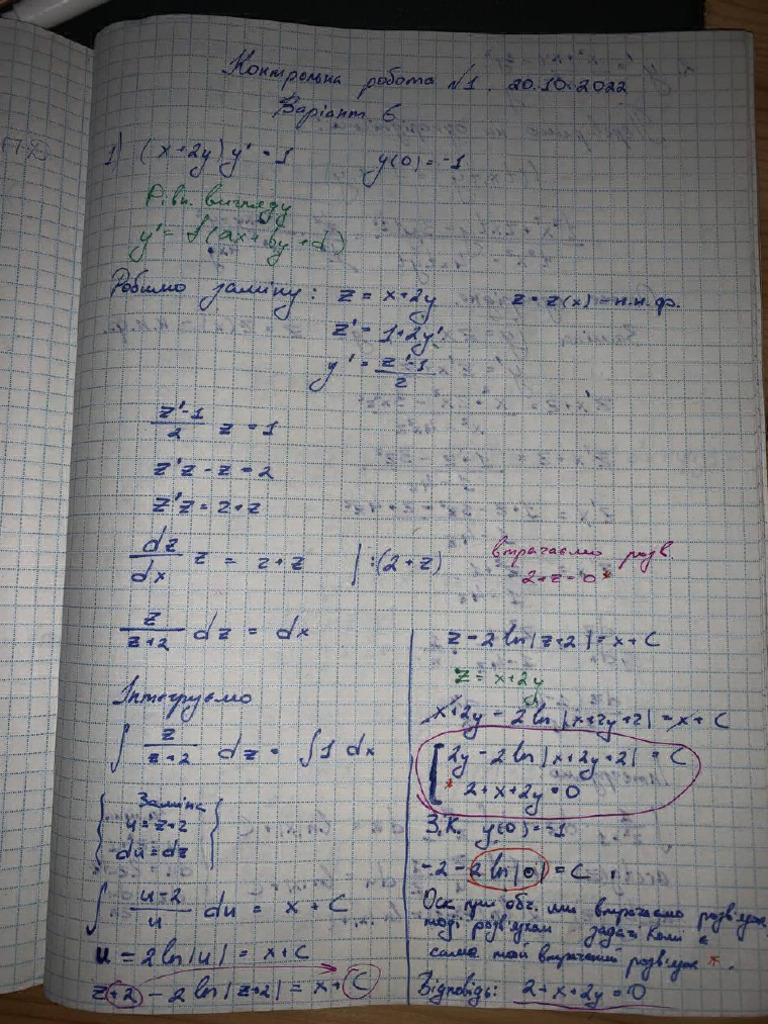 Контрольна робота №1. 20.10.2022
Варіант 6
1) (x+2y)y' = 1 y(0) = -1
Рівн. вигляду
y' = f(ax+by+c)
Робимо заміну: z = x+2y z = z(x) - н.н.ф.
z' = 1+2y'
y' = \frac{z'-1}{2}
\frac{z'-1}{2} z = 1
z'z - z = 2
z'z = 2+z
\frac{dz}{dx} z = 2+z | :(2+z) втрачаємо розв. 2+z=0*
\frac{z}{z+2} dz = dx
Інтегруємо
∫ \frac{z}{z+2} dz = ∫ 1 dx
{ Заміна
u = z+2
du = dz }
∫ \frac{u-2}{u} du = x + C
u = 2ln|u| = x+C
z+2 - 2ln|z+2| = x+C
z - 2ln|z+2| = x+C
z = x+2y
x+2y - 2ln|x+2y+2| = x+C
[ 2y - 2ln|x+2y+2| = C
* 2+x+2y=0
З.К. y(0) = -1
-2 - 2ln|0| = C
Оск при обч. ми втрачаємо розв'язок,
тоді розв'язком задачі Коші є
саме той втрачений розв'язок *.
Відповідь: 2+x+2y=0